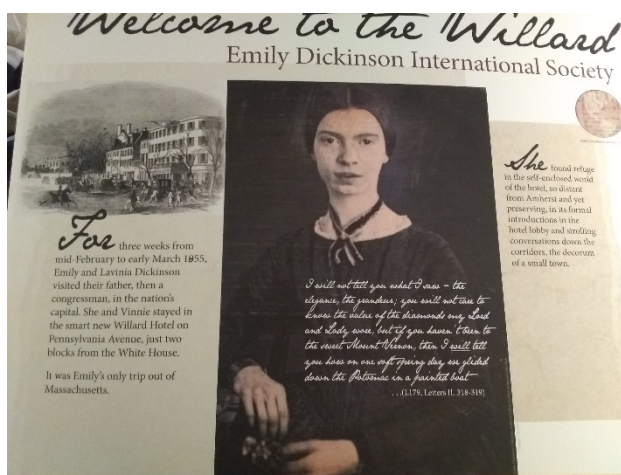 Welcome to the Willard
Emily Dickinson International Society
For three weeks from
mid-February to early March 1855,
Emily and Lavinia Dickinson
visited their father, then a
congressman, in the nation's
capital. She and Vinnie stayed in
the smart new Willard Hotel on
Pennsylvania Avenue, just two
blocks from the White House.
It was Emily's only trip out of
Massachusetts.
I will not tell you what I saw – the
elegance, the grandeur; you will not care to
know the value of the diamonds my Lord
and Lady wore, but if you haven't been to
the sweet Mount Vernon, then I will tell
you how on one soft spring day we glided
down the Potomac in a painted boat
...(L179, Letters II, 318-319)
She found refuge
in the self-enclosed world
of the hotel, so distant
from Amherst and yet
preserving, in its formal
introductions in the
hotel lobby and strolling
conversations down the
corridors, the decorum
of a small town.